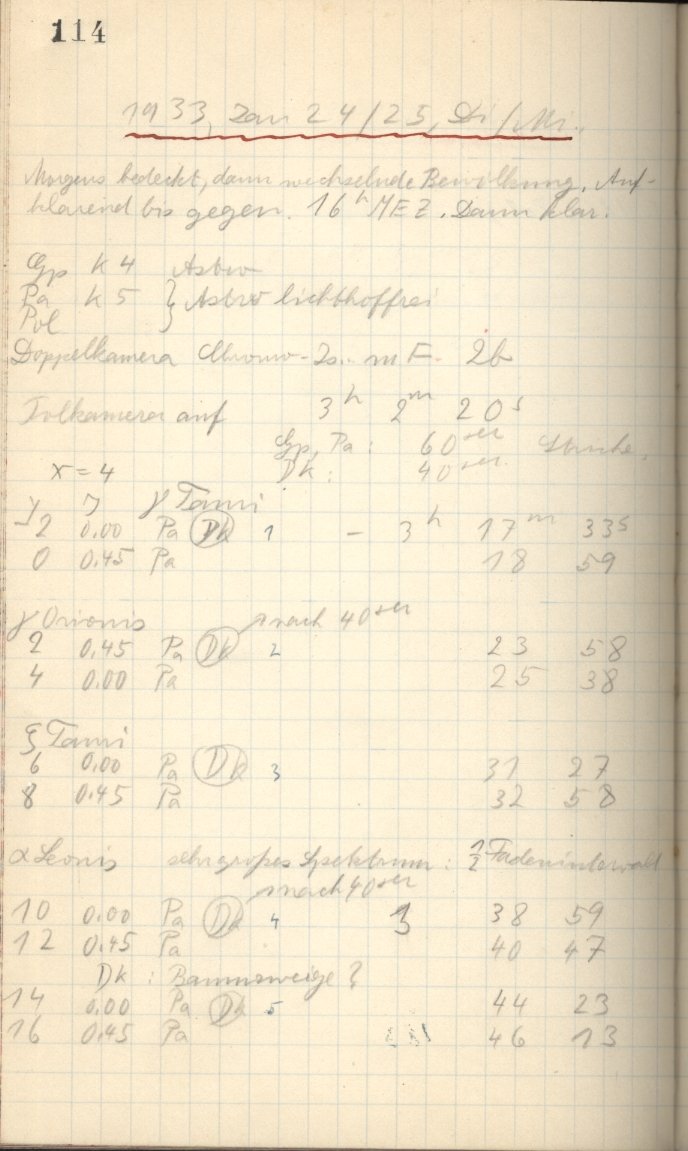 114
1933, Jan 24/25, Di/Mi.
Morgens bedeckt, dann wechselnde Bewölkung. Auf-
klarend bis gegen 16h MEZ. Dann klar.
Gp K4 Astro
Pa K5 } Astro lichthoffrei
Pol
Doppelkamera Chromo-Is. m F. 2b
Polkamera auf 3h 2m 20s
Gp, Pa: 60sec
x=4 DK: 40sec.
γ Tauri
-2 0.00 Pa Dk 1 - 3h 17m 33s
0 0.45 Pa 18 59
γ Orionis nach 40sec
2 0.45 Pa Dk 2 23 58
4 0.00 Pa 25 38
ξ Tauri
6 0.00 Pa Dk 3 31 27
8 0.45 Pa 32 58
α Leonis sehr großes Spektrum: 1/2 Fadenintervall
nach 40sec
10 0.00 Pa Dk 4 3 38 59
12 0.45 Pa 40 47
DK: Baumzweige?
14 0.00 Pa Dk 5 44 23
16 0.45 Pa 46 13